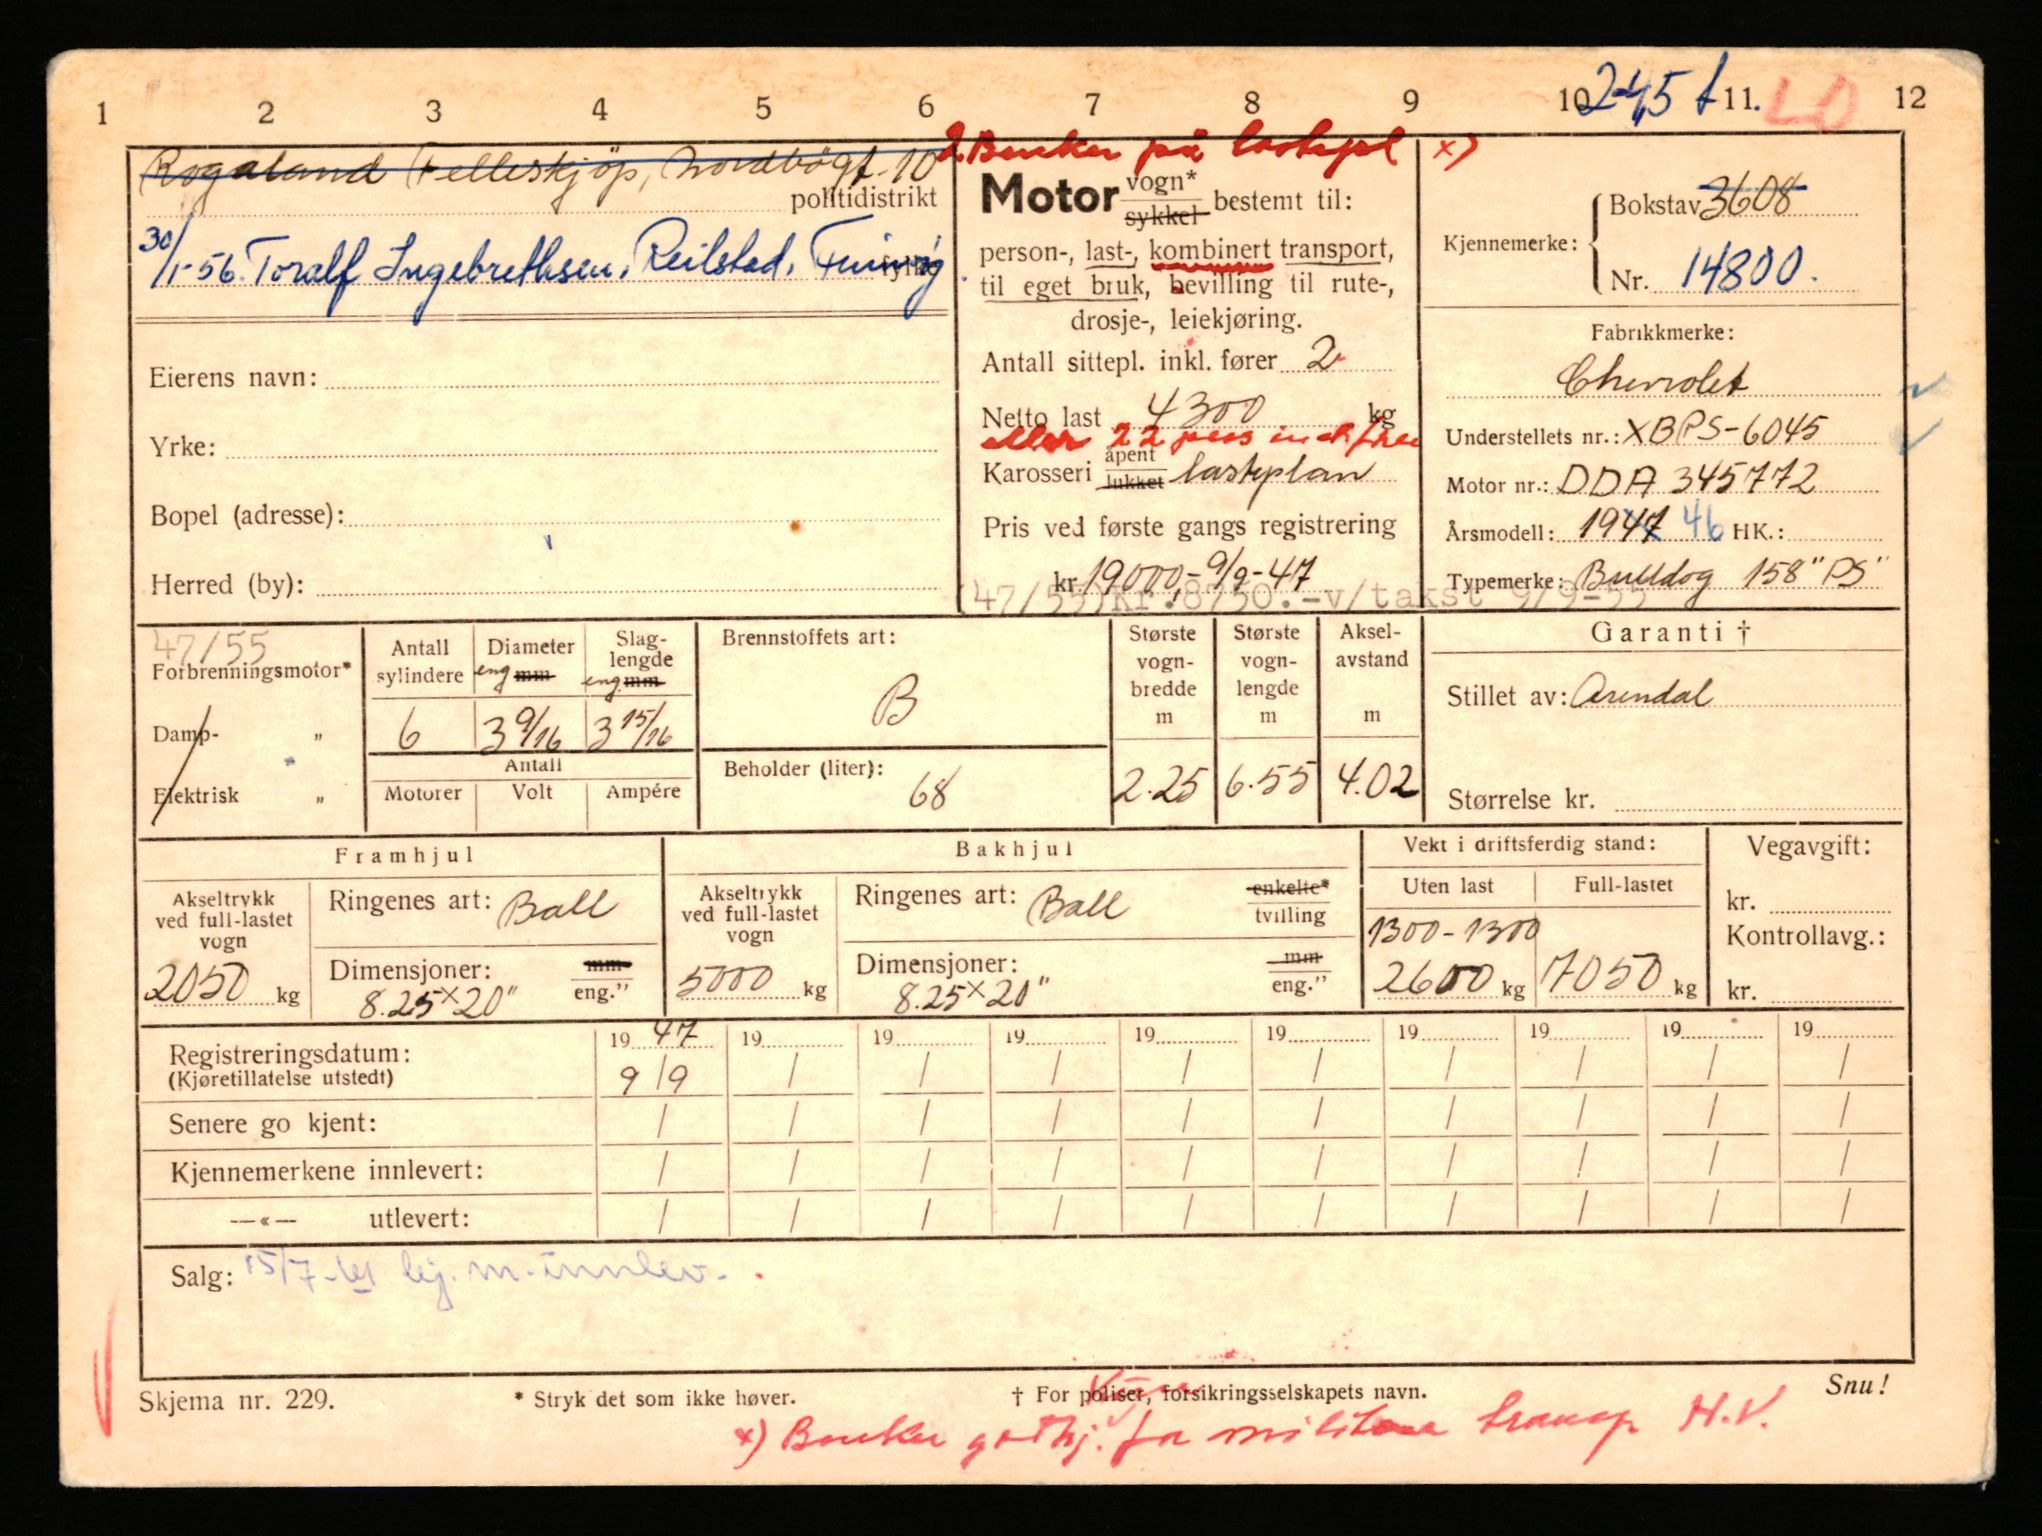 1 2 3 4 5 6 7 8 9 10 2-4,5 t 11. LO 12
Rogaland Felleskjöp, Nordbögt. 10
politidistrikt
30/1-56. Toralf Ingebrethsen, Reilstad, Finnøy.
fylke
Eierens navn:
Yrke:
Bopel (adresse):
Herred (by):
2. Benker på lastepl x)
Motor vogn* sykkel bestemt til:
person-, last-, kombinert transport,
til eget bruk, bevilling til rute-,
drosje-, leiekjøring.
Antall sittepl. inkl. fører 2
Netto last 4300 kg
eller 22 pers inkl. fører
Karosseri åpent lukket lasteplan
Pris ved første gangs registrering
kr 19000,- 9/9-47
(47/55) Kr. 8750.- v/takst 9/9-55
Kjennemerke: Bokstav 3608
Nr. 14800.
Fabrikkmerke:
Chevrolet
Understellets nr.: XBPS-6045
Motor nr.: DDA 345772
Årsmodell: 1947 46 HK.:
Typemerke: Bulldog 158" "PS"
47/55
Forbrenningsmotor*
Damp- „
Elektrisk „
Antall sylindere
Diameter eng mm
Slag-lengde eng. mm
6 3 9/16 3 15/16
Antall
Motorer Volt Ampére
Brennstoffets art:
B
Beholder (liter):
68
Største vogn-bredde m
Største vogn-lengde m
Aksel-avstand m
2.25 6.55 4.02
Garanti †
Stillet av: Arendal
Størrelse kr.
Framhjul
Akseltrykk ved full-lastet vogn
2050 kg
Ringenes art: Ball
Dimensjoner: mm
8.25x20" eng."
Bakhjul
Akseltrykk ved full-lastet vogn
5000 kg
Ringenes art: Ball enkelte* tvilling
Dimensjoner: mm
8.25x20" eng."
Vekt i driftsferdig stand:
Uten last Full-lastet
1300-1300
2600 kg 7050 kg
Vegavgift:
kr.
Kontrollavg.:
kr.
19 47 19 19 19 19 19 19 19 19 19
Registreringsdatum: 9/9 / / / / / / / / /
(Kjøretillatelse utstedt)
Senere go kjent: / / / / / / / / / /
Kjennemerkene innlevert: / / / / / / / / / /
—«— utlevert: / / / / / / / / / /
Salg: 15/7-61 kj. m. innlev.
Skjema nr. 229.
* Stryk det som ikke høver.
† For poliser, forsikringsselskapets navn.
Snu!
x) Benker godkj. for militære transp H.V.